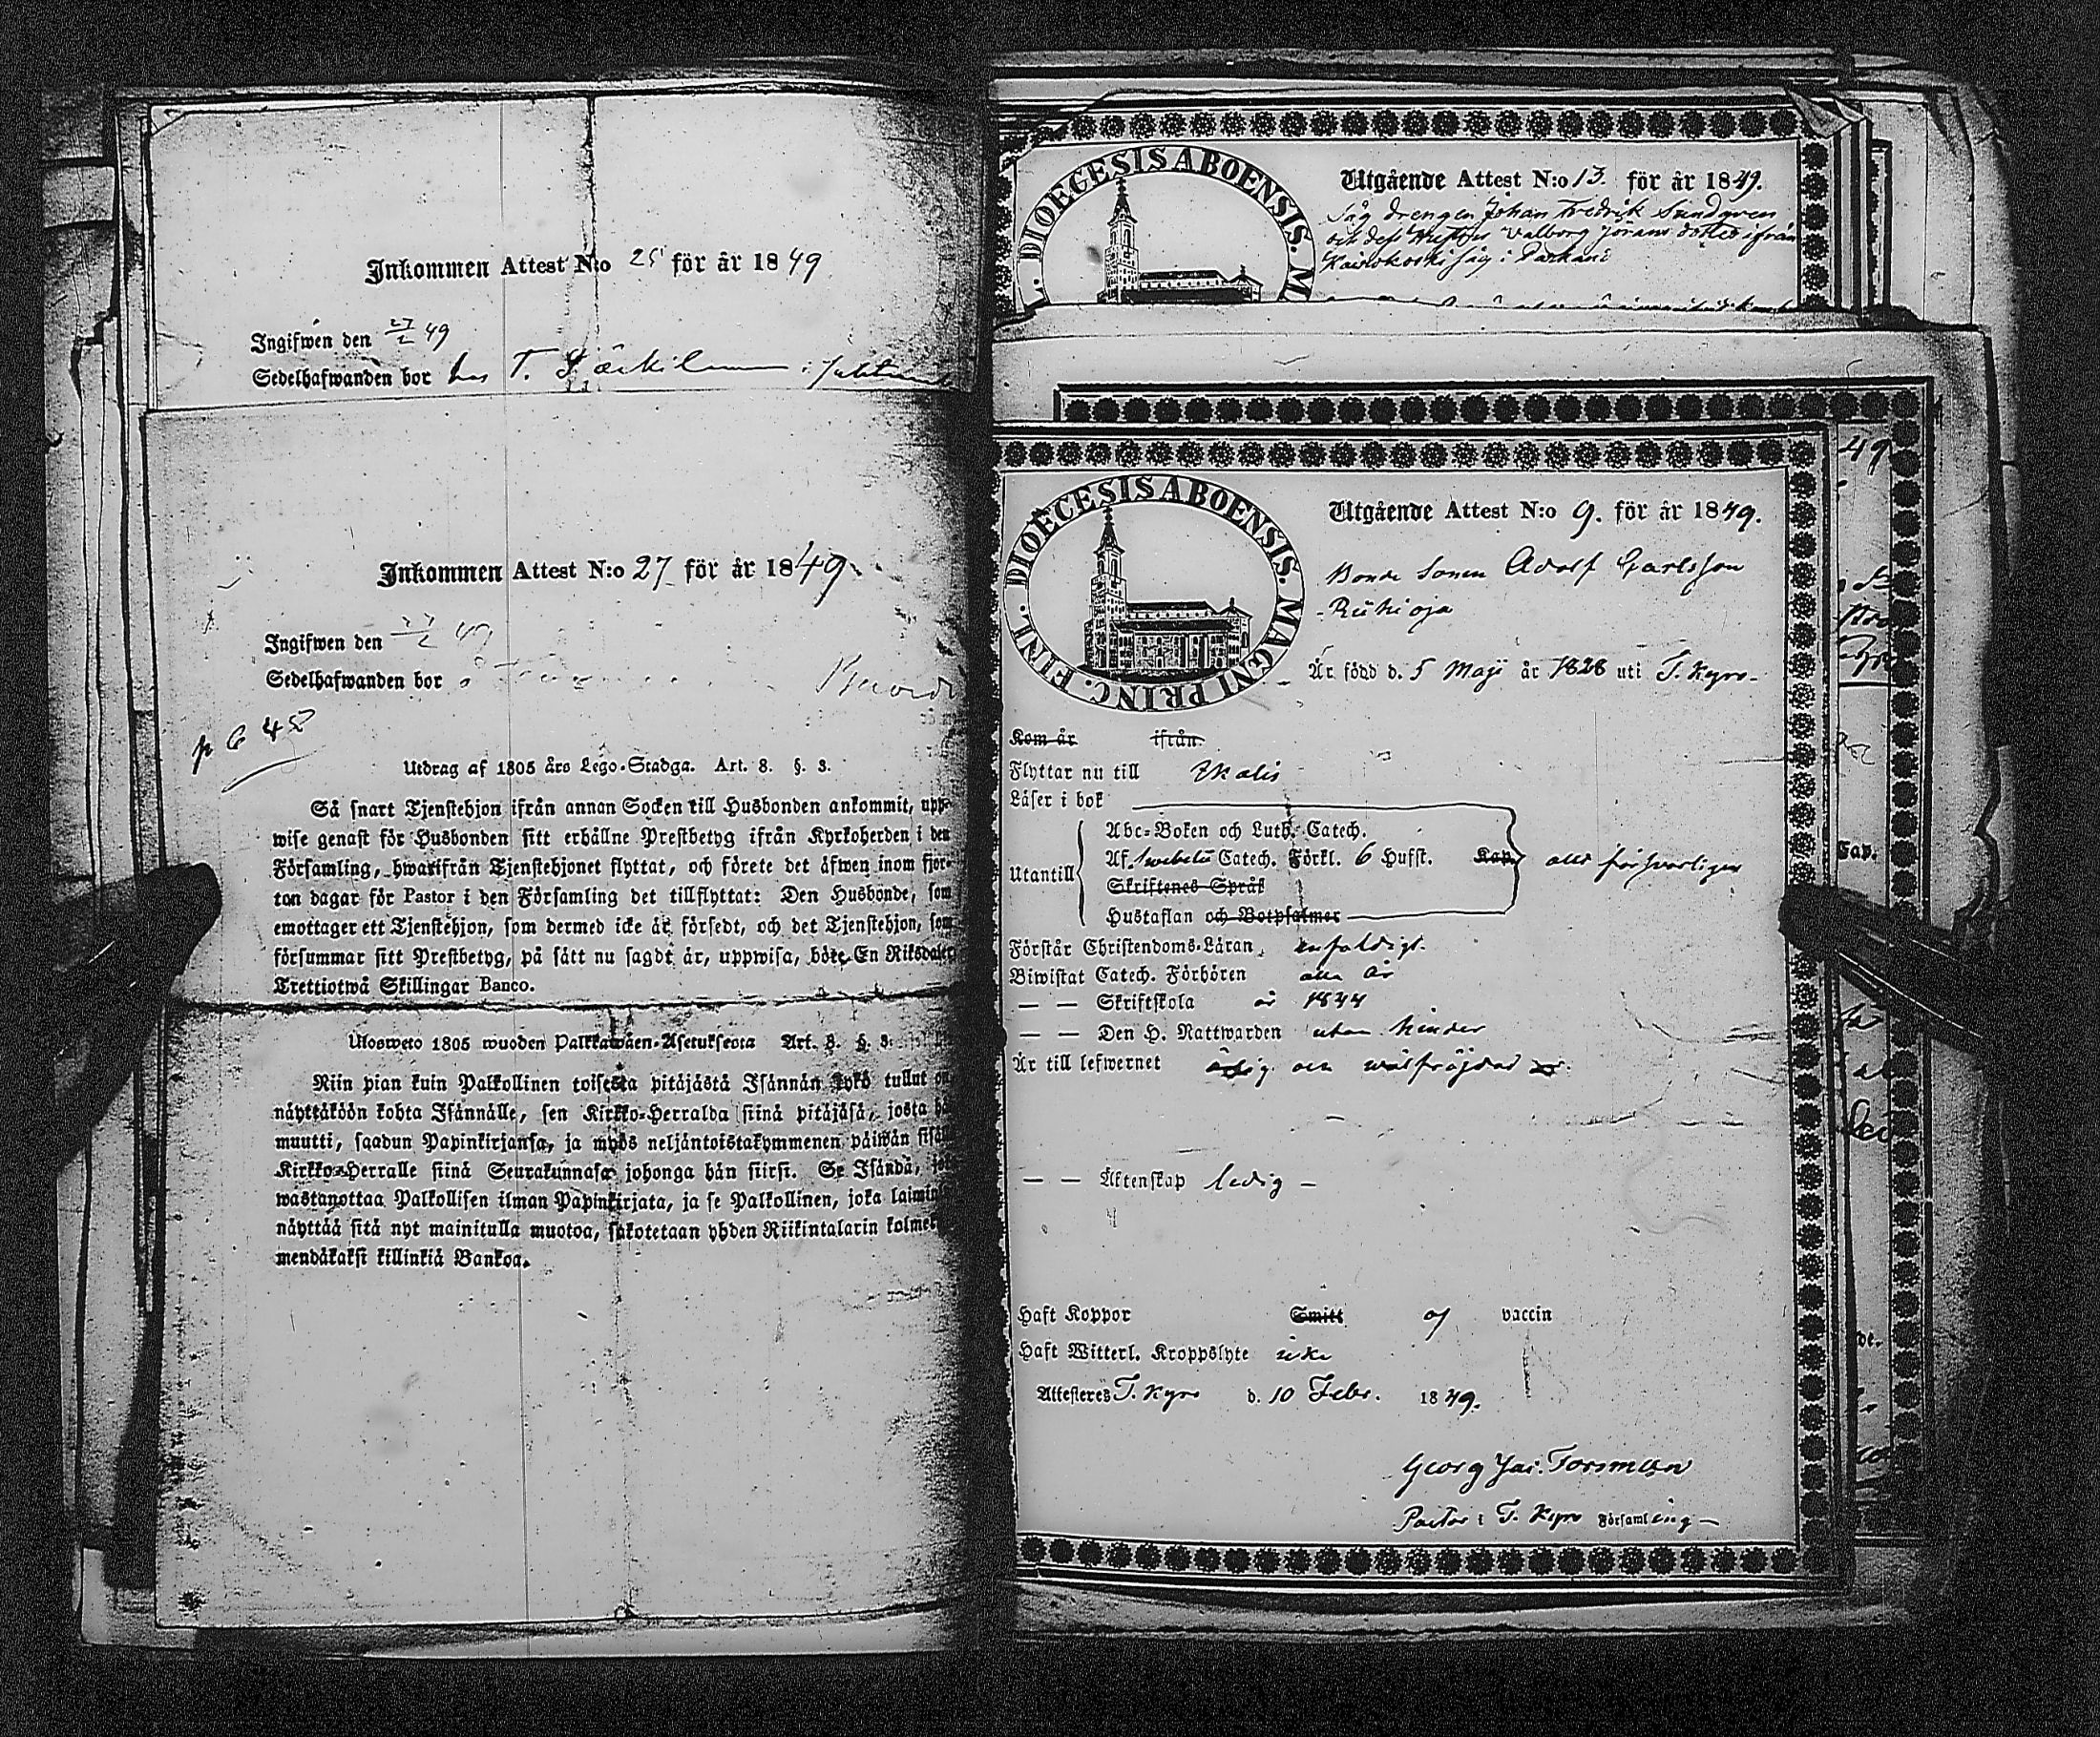 Inkommen Attest N:o 25 för år 1849
Ingifwen den 27/2 49
Sedelhafwanden bor hos T.
Inkommen Attest N:o 27 för år 1849
Ingifwen den 27/2 49
Sedelhafwanden bor
p C 45
Utdrag af 1805 års Lego-Stadga. Art. 8. §. 3.
Så snart Tjenstehjon ifrån annan Socken till Husbonden ankommit, upp-
wise genast för Husbonden sitt erhållne Prestbetyg ifrån Kyrkoherden i den
Församling, hwarifrån Tjenstehjonet flyttat, och förete det äfwen inom fjor-
ton dagar för Pastor i den Församling det tillflyttat: Den Husbonde, som
emottager ett Tjenstehjon, som dermed icke är försedt, och det Tjenstehjon, som
försummar sitt Prestbetyg, på sätt nu sagdt är, uppwisa, böte En Riksdaler
Trettiotwå Skillingar Banco.
Ulosweto 1805 wuoden Palkkawäen-Asetuksesta Art. 8. §. 3.
Niin pian kuin Palkollinen toisesta pitäjästä Isännän tykö tullut on
näyttäköön kohta Isännälle, sen Kirkko-Herralda siinä pitäjäsä, josta hän
muutti, saadun Papinkirjansa, ja myös neljäntoistakymmenen päiwän sisällä
Kirkko-Herralle siinä Seurakunnasa johonga hän siirsi. Se Isändä, joka
wastanottaa Palkollisen ilman Papinkirjata, ja se Palkollinen, joka laimin
näyttää sitä nyt mainitulla muotoa, sakotetaan yhden Riikintalarin kolmet
mendäkaksi killinkiä Bankoa.
DIOECESIS ABOENSIS. M
Utgående Attest N:o 13. för år 1849.
Såg drengen Johan Fredrik Sundgren
och dess Hustru Valborg Jörans dotter ifrån
Kairokoski såg i Parkano
DIOECESIS ABOENSIS. MAGNI PRINC. FINL.
Utgående Attest N:o 9. för år 1849.
Bonde Sonen Adolf Carlsson
Ruhioja
Är född d. 5 Maji år 1828 uti T. Kyro
Kom år ifrån
Flyttar nu till Ikalis
Läser i bok
Utantill
Abc-Boken och Luth. Catech.
Af Swebelii Catech. Förkl. 6 Hufst. Kap. allt försvarligen
Skriftenes Språk
Hustaflan och Botpsalmer
Förstår Christendoms-Läran enfaldigt.
Biwistat Catech. Förhören alla år
— — Skriftskola år 1844
— — Den H. Nattwarden utan hinder
Är till lefwernet ärlig och wälfräjdad
— — Äktenskap ledig —
Haft Koppor Smitt af vaccin
Haft Witterl. Kroppslyte icke
Attesteres T. Kyro d. 10 Febr. 1849.
Georg Jac. Forsman
Pastor i T. Kyro Församling —
49
Kap.